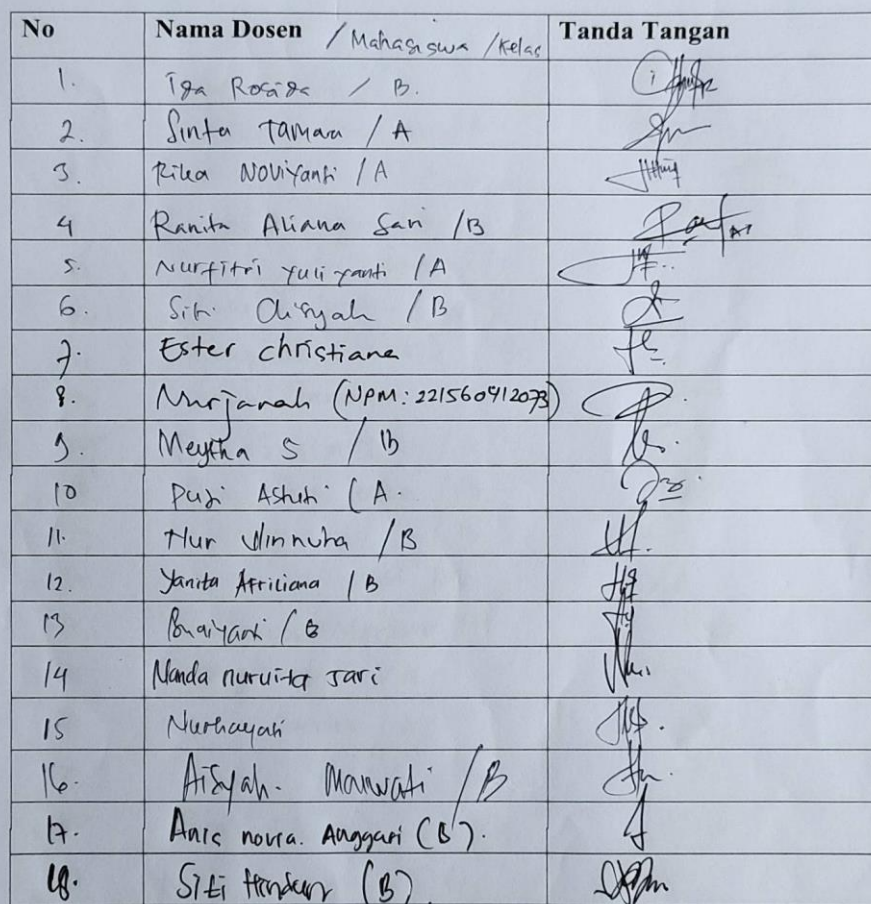 No Nama Dosen / Mahasiswa / Kelas Tanda Tangan
1. Iga Rosiga / B.
2. Sinta Tamara / A
3. Rika Noviyanti / A
4 Ranita Aliana Sari / B
5. Nurfitri Yuliyanti / A
6. Siti Aisyah / B
7. Ester christiana
8. Nurjanah (NPM: 221560412073)
9. Meytha S / B
10 Puji Astuti ( A.
11. Nur / B
12. Yanita Afriliana / B
13 / B
14 Nanda nuruita sari
15 Nurhayati
16. Aisyah. Marwati / B
17. Anis novia. Anggari (B).
18. Siti (B)